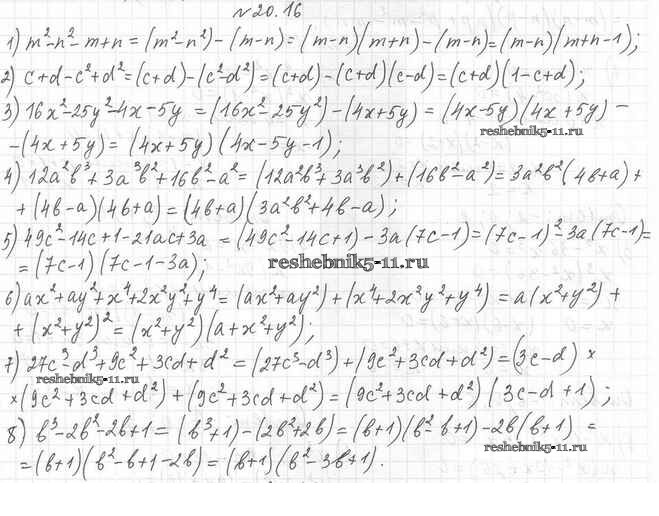 №20.16
1) m²-n²-m+n = (m²-n²)-(m-n) = (m-n)(m+n)-(m-n) = (m-n)(m+n-1);
2) c+d-c²+d² = (c+d)-(c²-d²) = (c+d)-(c+d)(c-d) = (c+d)(1-c+d);
3) 16x²-25y²-4x-5y = (16x²-25y²)-(4x+5y) = (4x-5y)(4x+5y)-
reshebnik5-11.ru
-(4x+5y) = (4x+5y)(4x-5y-1);
4) 12a²b³+3a³b²+16b²-a² = (12a²b³+3a³b²)+(16b²-a²) = 3a²b²(4b+a)+
+(4b-a)(4b+a) = (4b+a)(3a²b²+4b-a);
5) 49c²-14c+1-21ac+3a = (49c²-14c+1)-3a(7c-1) = (7c-1)²-3a(7c-1)=
= (7c-1)(7c-1-3a);
reshebnik5-11.ru
6) ax²+ay²+x⁴+2x²y²+y⁴ = (ax²+ay²)+(x⁴+2x²y²+y⁴) = a(x²+y²)+
+(x²+y²)² = (x²+y²)(a+x²+y²);
7) 27c³-d³+9c²+3cd+d² = (27c³-d³)+(9c²+3cd+d²) = (3c-d)×
reshebnik5-11.ru
×(9c²+3cd+d²)+(9c²+3cd+d²) = (9c²+3cd+d²)(3c-d+1);
8) b³-2b²-2b+1 = (b³+1)-(2b²+2b) = (b+1)(b²-b+1)-2b(b+1) =
reshebnik5-11.ru
= (b+1)(b²-b+1-2b) = (b+1)(b²-3b+1).